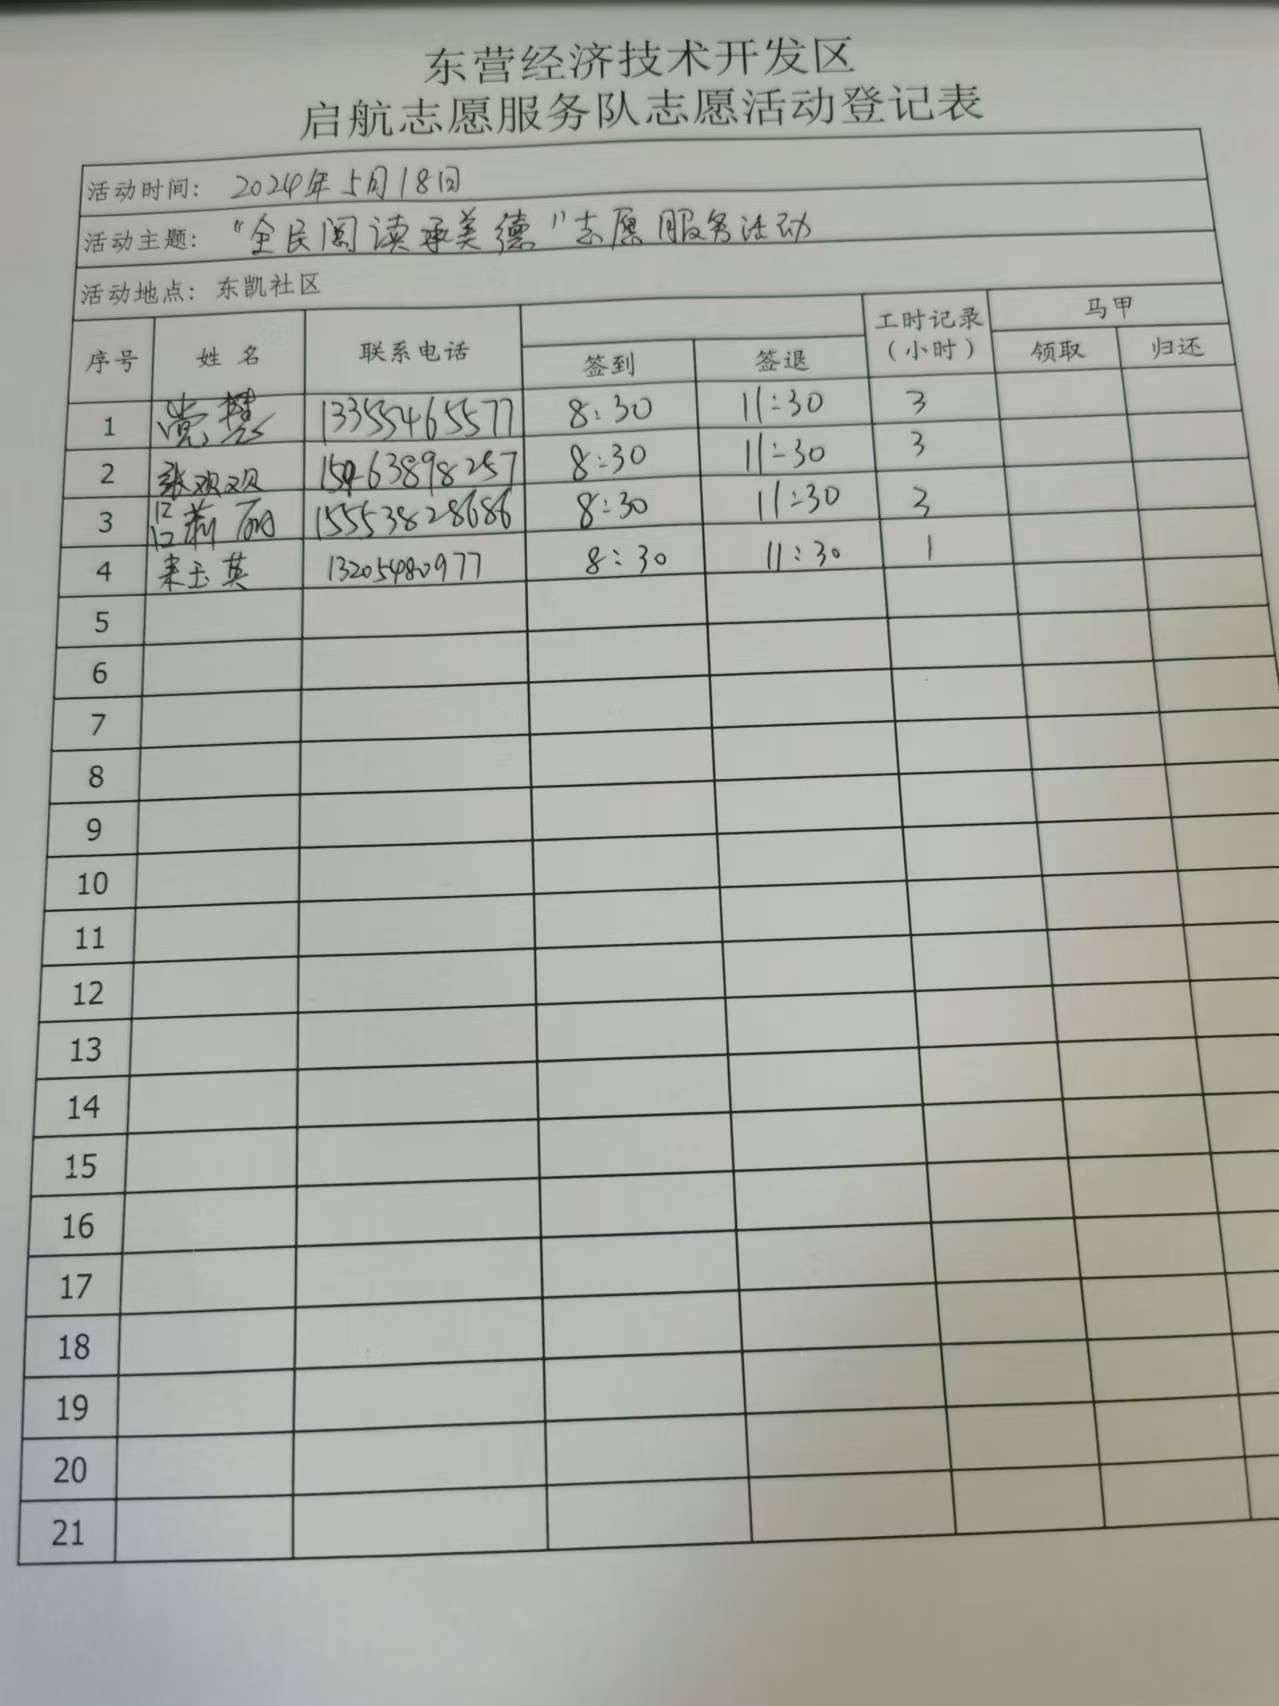 东营经济技术开发区
启航志愿服务队志愿活动登记表
活动时间: 2024年5月18日
活动主题: “全民阅读承美德”志愿服务活动
活动地点: 东凯社区
序号 姓名 联系电话 签到 签退 工时记录(小时) 马甲 领取 归还
1 党慧 13355465577 8:30 11:30 3
2 张双双 15463898257 8:30 11:30 3
3 吕莉丽 15553828686 8:30 11:30 3
4 来玉英 13205480977 8:30 11:30 1
5
6
7
8
9
10
11
12
13
14
15
16
17
18
19
20
21